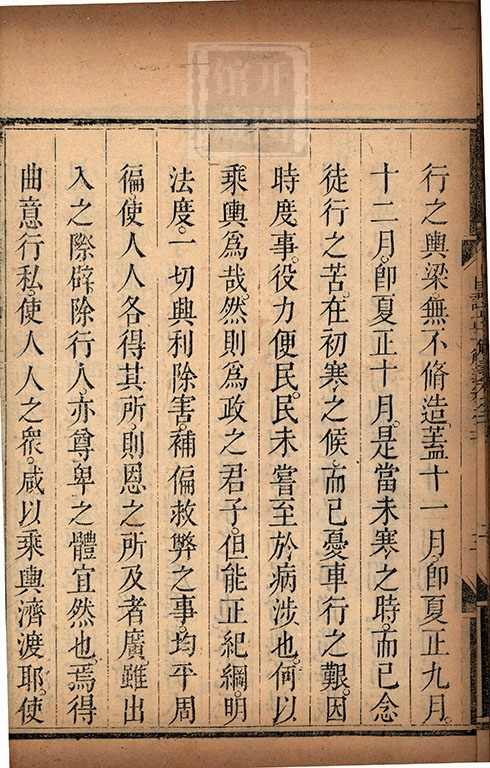 行之輿梁無不脩造蓋十一月卽夏正九月。
十二月。卽夏正十月。是當未寒之時。而已念
徒行之苦。在初寒之候。而已憂車行之艱。因
時度事。役力便民。民未嘗至於病涉也。何以
乘輿爲哉。然則爲政之君子。但能正紀綱。明
法度。一切興利除害。補偏救弊之事。均平周
徧。使人人各得其所。則恩之所及者廣。雖出
入之際。辟除行人。亦尊卑之體宜然也。焉得
曲意行私。使人人之衆。咸以乘輿濟渡耶。使